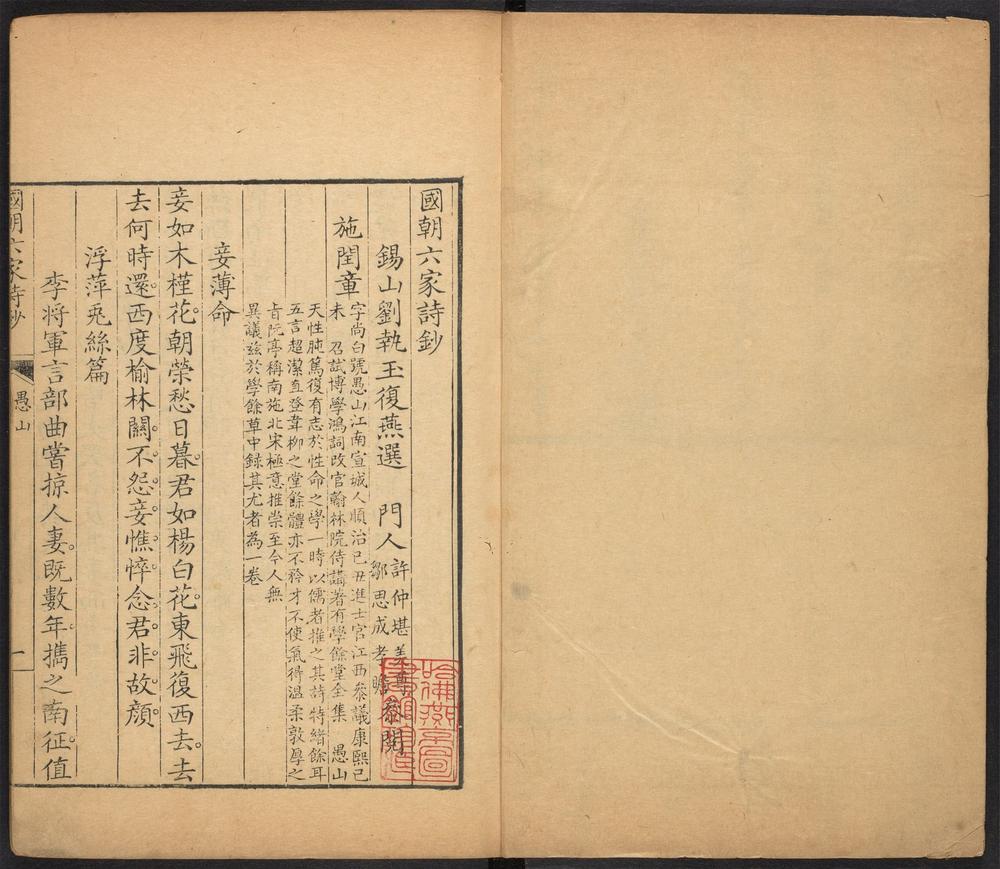 國朝六家詩鈔
錫山劉執玉復燕選　門人許仲堪美尊
鄒思成孝瞻
叅閱
施閏章
字尚白號愚山江南宣城人順治己丑進士官江西叅議康熙己
未　召試博學鴻詞改官翰林院侍講著有學餘堂全集　愚山
天性肫篤復有志於性命之學一時以儒者推之其詩特緒餘耳
五言超潔直登韋柳之堂餘體亦不矜才不使氣得温柔敦厚之
㫖阮亭稱南施北宋極意推崇至今人無
異議兹於學餘草中録其尤者為一卷
妾薄命
妾如木槿花朝榮愁日暮君如楊白花東飛復西去去
去何時還西度榆林關不怨妾憔悴念君非故顔
浮萍兎絲篇
李將軍言部曲嘗掠人妻既數年攜之南征值
國朝六家詩鈔
愚山
一
哈佛燕京圖